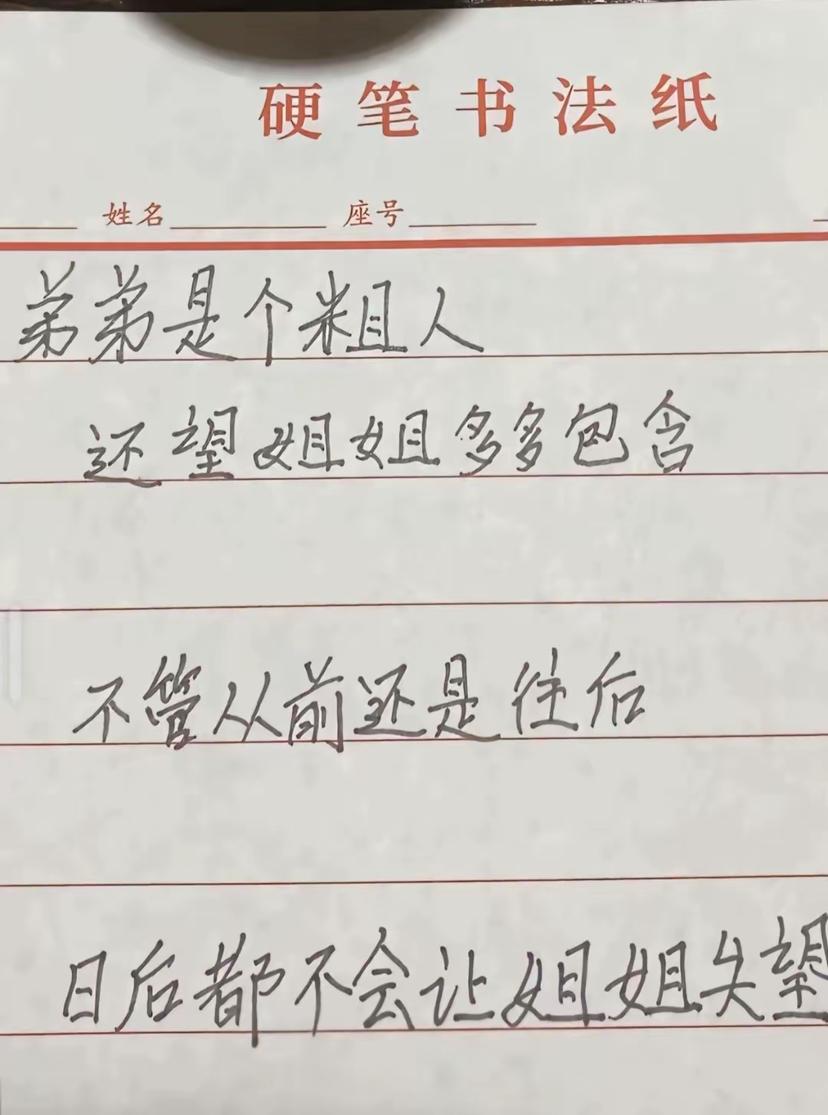 硬笔书法纸
姓名 座号
弟弟是个粗人
还望姐姐多多包含
不管从前还是往后
日后都不会让姐姐失望